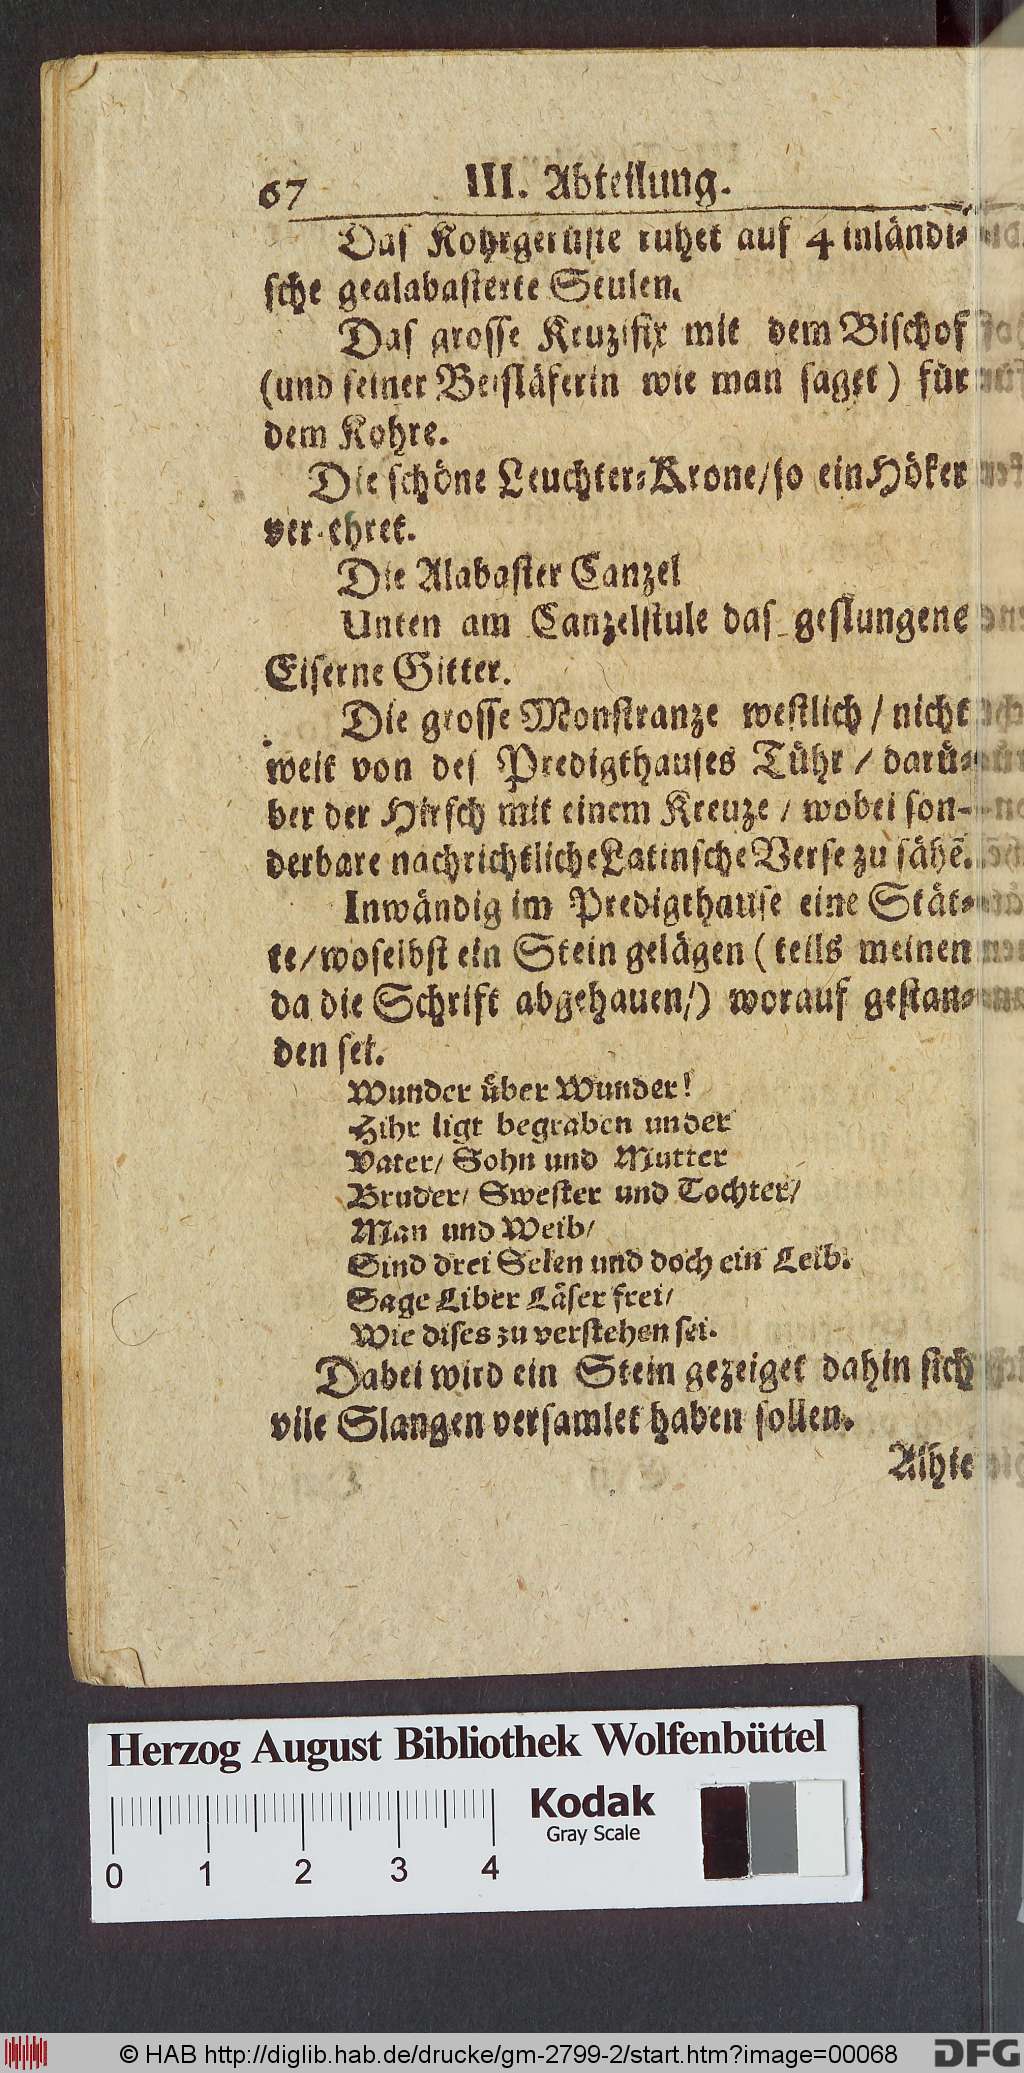 67 III. Abteilung.
Das Kohrgerüste ruhet auf 4 inländi-
sche gealabasterte Seulen.
Das grosse Kruzifix mit dem Bischof
(und seiner Beisläferin wie man saget) für
dem Kohre.
Die schöne Leuchter-Krone/so ein Höker
ver-ehret.
Die Alabaster Canzel
Unten am Canzelstule das geslungene
Eiserne Gitter.
Die grosse Monstranze westlich / nicht
weit von des Predigthauses Tühr / darü-
ber der Hirsch mit einem Kreuze / wobei son-
derbare nachrichtliche Latinsche Verse zu sähẽ.
Inwändig im Predigthause eine Stät-
te/woselbst ein Stein gelägen ( teils meinen
da die Schrift abgehauen/) worauf gestan-
den sei.
Wunder über Wunder!
Hihr ligt begraben under
Vater/ Sohn und Mutter
Bruder/ Swester und Tochter/
Man und Weib/
Sind drei Selen und doch ein Leib.
Sage Liber Läser frei/
Wie dises zu verstehen sei.
Dabei wird ein Stein gezeiget dahin sich
vile Slangen versamlet haben sollen.
Alhie
Herzog August Bibliothek Wolfenbüttel
Kodak
Gray Scale
0 1 2 3 4
© HAB http://diglib.hab.de/drucke/gm-2799-2/start.htm?image=00068
DFG